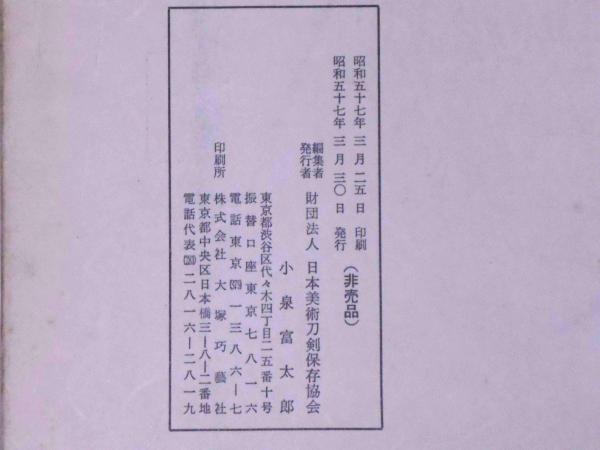 昭和五十七年 三月二五日 印刷
昭和五十七年 三月三〇日 発行
(非売品)
編集者
発行者
財団法人 日本美術刀剣保存協会
小泉富太郎
東京都渋谷区代々木四丁目二五番十号
振替口座東京七八一六
電話東京 一三八六―七
印刷所
株式会社 大塚巧藝社
東京都中央区日本橋三―八―二番地
電話代表 二八一六―二八一九